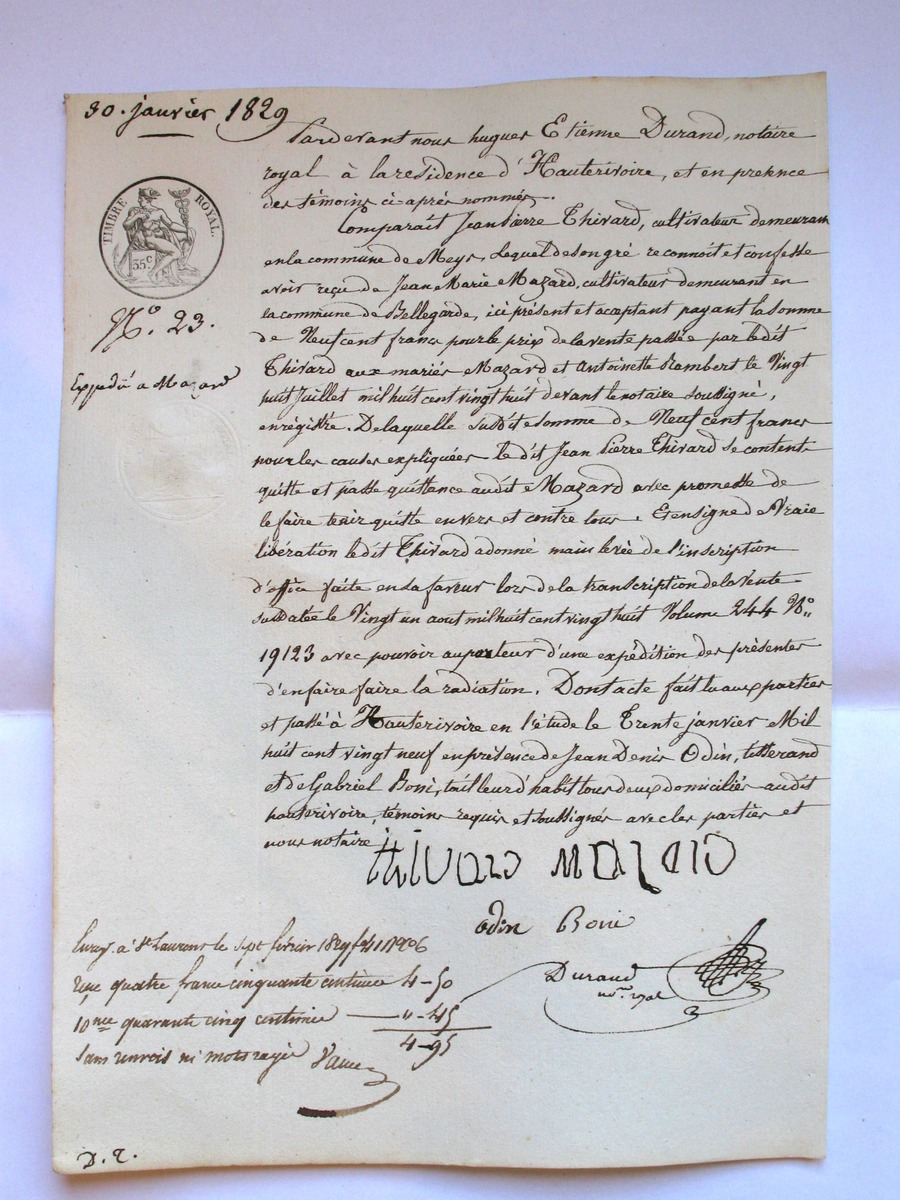 30. janvier 1829
Pardevant nous hugues Etienne Durand, notaire
royal à la residence d'Hauterivoire, et en presence
des témoins ci-après nommés.
Comparaît Jean Pierre Thivard, cultivateur demeurant
TIMBRE ROYAL.
35c
en la commune de Meys, Lequel de son gré reconnoit et confesse
avoir reçu de Jean Marie Mazard, cultivateur demeurant en
la commune de Bellegarde, ici présent et aceptant payant la somme
N° 23.
de Neuf cent francs pour le prix de la vente passée par le dit
Thivard aux mariés Mazard et Antoinette Rambert le Vingt
Expédié a Mazard
huit Juillet mil huit cent vingt huit devant le notaire soussigné,
enrégistré. De laquelle susdite somme de Neuf cent francs
pour les causes expliquées le dit Jean Pierre Thivard se contente
quitte et passe quittance audit Mazard avec promesse de
le faire tenir quitte envers et contre tous. Et en signe de Vraie
libération le dit Thivard a donné main levée de l'inscription
d'office faite en sa faveur lors de la transcription de la Vente
susdatée le Vingt un aout mil huit cent vingt huit Volume 244 N°
19123 avec pouvoir au porteur d'une expédition des présentes
d'en faire faire la radiation. Dont acte fait lu aux parties
et passé à Hauterivoire en l'étude le Trente janvier Mil
huit cent vingt neuf en présence de Jean Denis Odin, tisserand
et de Gabriel Boni, tailleur d'habit tous deux domiciliés audit
hauterivoire, témoins requis et soussignés avec les parties et
nous notaire
thivard mazard
odin Boni
Enreg. à St Laurent le sept février 1829
reçu quatre francs cinquante centimes 4-50
Durand
nre royal
10me quarante cinq centimes 0-45
4-95
Sans renvois ni mots rayés
D. T.